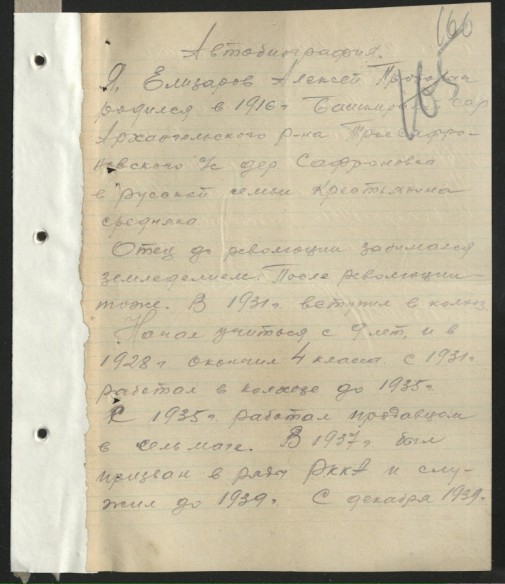 160
Автобиография.
Я, Елизаров Алексей
родился в 1916г
Архангельского р-на
с/с дер Сафроновка
в русской семьи крестьянина
средняка
Отец до революции занимался
земледелием. После революции
тоже. В 1931г. вступил в колхоз.
Начал учиться с 9 лет, и в
1928г окончил 4 класса. с 1931г.
работал в колхозе до 1935г
С 1935г. работал продавцом
в сельмаге. В 1937г. был
призван в ряды РККА и слу-
жил до 1939г С декабря 1939г.